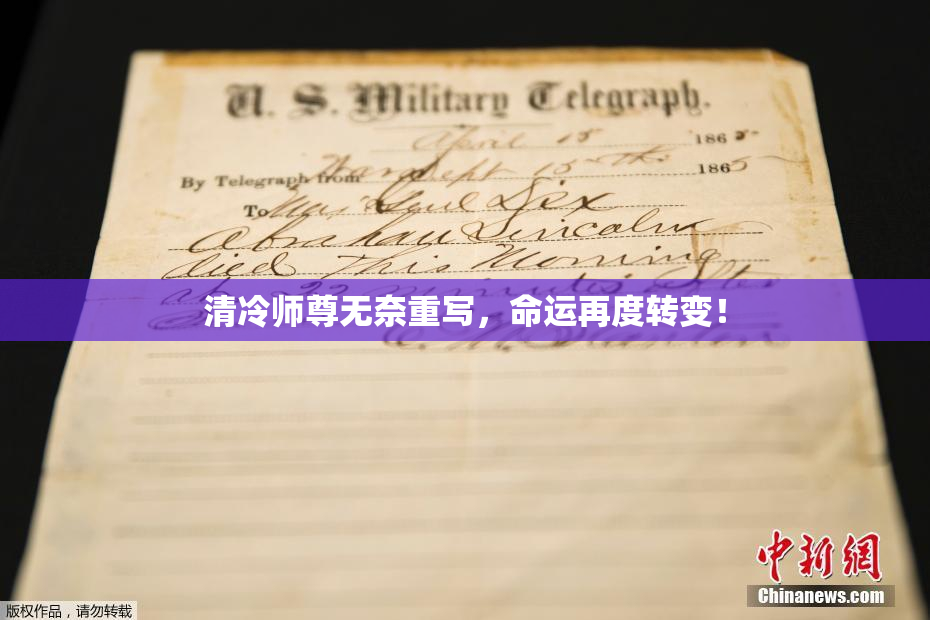 U. S. Military Telegraph.
April 15 1865
By Telegraph from War Dept 15th 1865
To Maj Genl Dix
Abraham Lincoln
died This Morning
at 22 minutes after
清冷师尊无奈重写，命运再度转变！
E. M. Stanton
中新網
Chinanews.com
版权作品，请勿转载